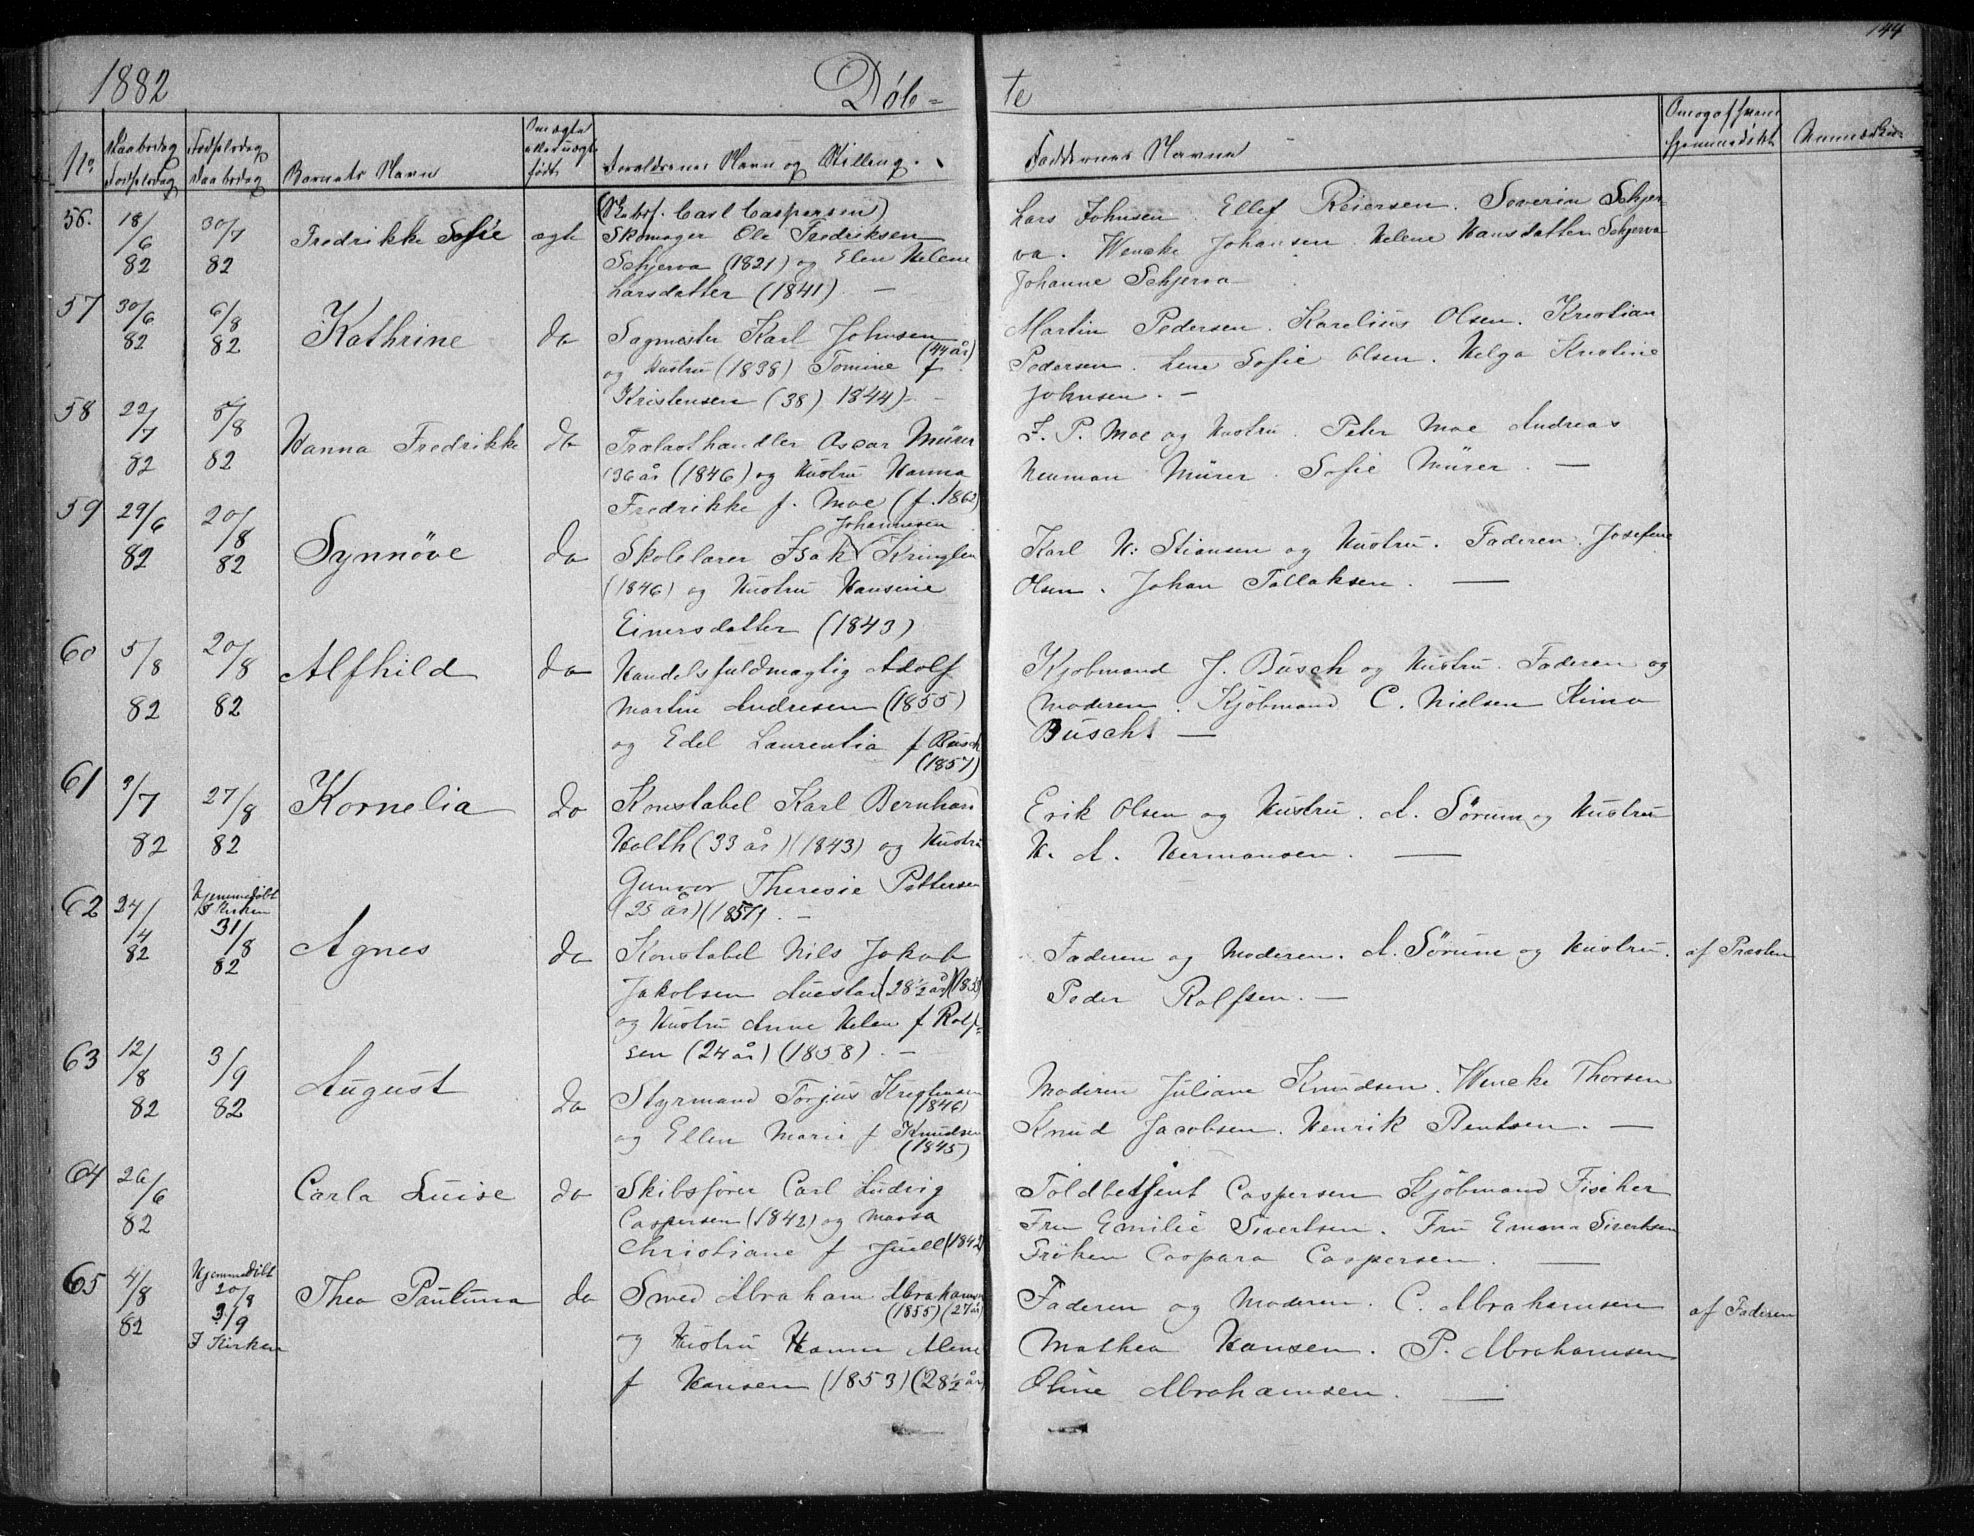 144
1882 Døb- te
No. Daabsdag Fødselsdag Fødselsdag Daabsdag Barnets Navn Om ægte eller uægte født Forældrenes Navn og Stilling. Faddernes Navne Om og af hvem hjemmedøbt
56. 18/6 82 30/7 82 Fredrikke Sofie ægte
(Carl Caspersen)
Skomager Ole Fredriksen
Schjerva (1821) og Elen Helene
Larsdatter (1841). —
Lars Johnsen. Ellef Reiersen. Soverin Schjer-
va. Wencke Johansen. Helene Hansdatter Schjerva
Johanne Schjerva
57 30/6 82 6/8 82 Kathrine do
Sagmester Karl Johnsen
(44 år)
og Hustru (1838) Tomine f.
Kristensen (38) 1844) —
Martin Pedersen. Karelius Olsen. Kristian
Pedersen. Lene Sofie Olsen. Helga Kristine
Johnsen. —
58 22/7 82 5/8 82 Hanna Fredrikke do
Trælasthandler Oscar Mürer
36 år (1846) og Hustru Hanna
Fredrikke f. Moe (f. 1862)
F. P. Moe og Hustru. Peter Moe Andreas
Neuman Mürer. Sofie Mürer. —
59 29/6 82 20/8 82 Synnøve do
Johannesen
Skolelærer Isak Kringlen
(1846) og Hustru Hansine
Einersdatter (1843)
Karl H: Stiansen og Hustru. Faderen. Josefine
Olsen. Johan Tallaksen. —
60 5/8 82 20/8 82 Alfhild do
Handelsfuldmægtig Adolf
Martin Andresen (1855)
og Edel Laurentia f Busch
(1857)
Kjøbmand J. Busch og Hustru. Faderen og
Moderen. Kjøbmand C. Nielsen Kima
Busch. —
61 9/7 82 27/8 82 Kornelia do
Konstabel Karl Bernhar
Holth (33 år) (1843) og Hustru
Gunvor Theresie Pettersen
(25 år) (1857). —
Erik Olsen og Hustru. A. Sørum og Hustru
H. A. Hermansen. —
62 24/4 82 Hjemmedøbt I Kirken 31/8 82 Agnes do
Konstabel Nils Jakob
Jakobsen Auestad (28½ år)
og Hustru Anne Helen f Rolf-
sen (24 år) (1858). —
Faderen og Moderen. A. Sørum og Hustru. af Præsten
Peder Rolfsen. —
63 12/8 82 3/9 82 August do
Styrmand Torjus Kristensen
(1846)
og Ellen Marie f Knudsen
(1845)
Moderen Juliane Knudsen. Wencke Thorsen
Knud Jacobsen. Henrik Bentsen. —
64 26/6 82 Carla Luise do
Skibsfører Carl Ludvig
Caspersen (1842) og Massa
Christiane f Juell (1842)
Toldbetjent Caspersen Kjøbmand Fischer
Fru Emilie Sivertsen. Fru Emma Sivertsen
Frøken Caspara Caspersen. —
65 4/8 82 Hjemmedøbt 20/8 3/9 I Kirken Thea Pauluna do
Smed Abraham Abrahamsen
(1855) (27 år)
og Hustru Hanne Alene
f Hansen (1853) (28½ år)
Faderen og Moderen. C. Abrahamsen af Faderen
Mathea Hansen. P. Abrahamsen
Oline Abrahamsen. —